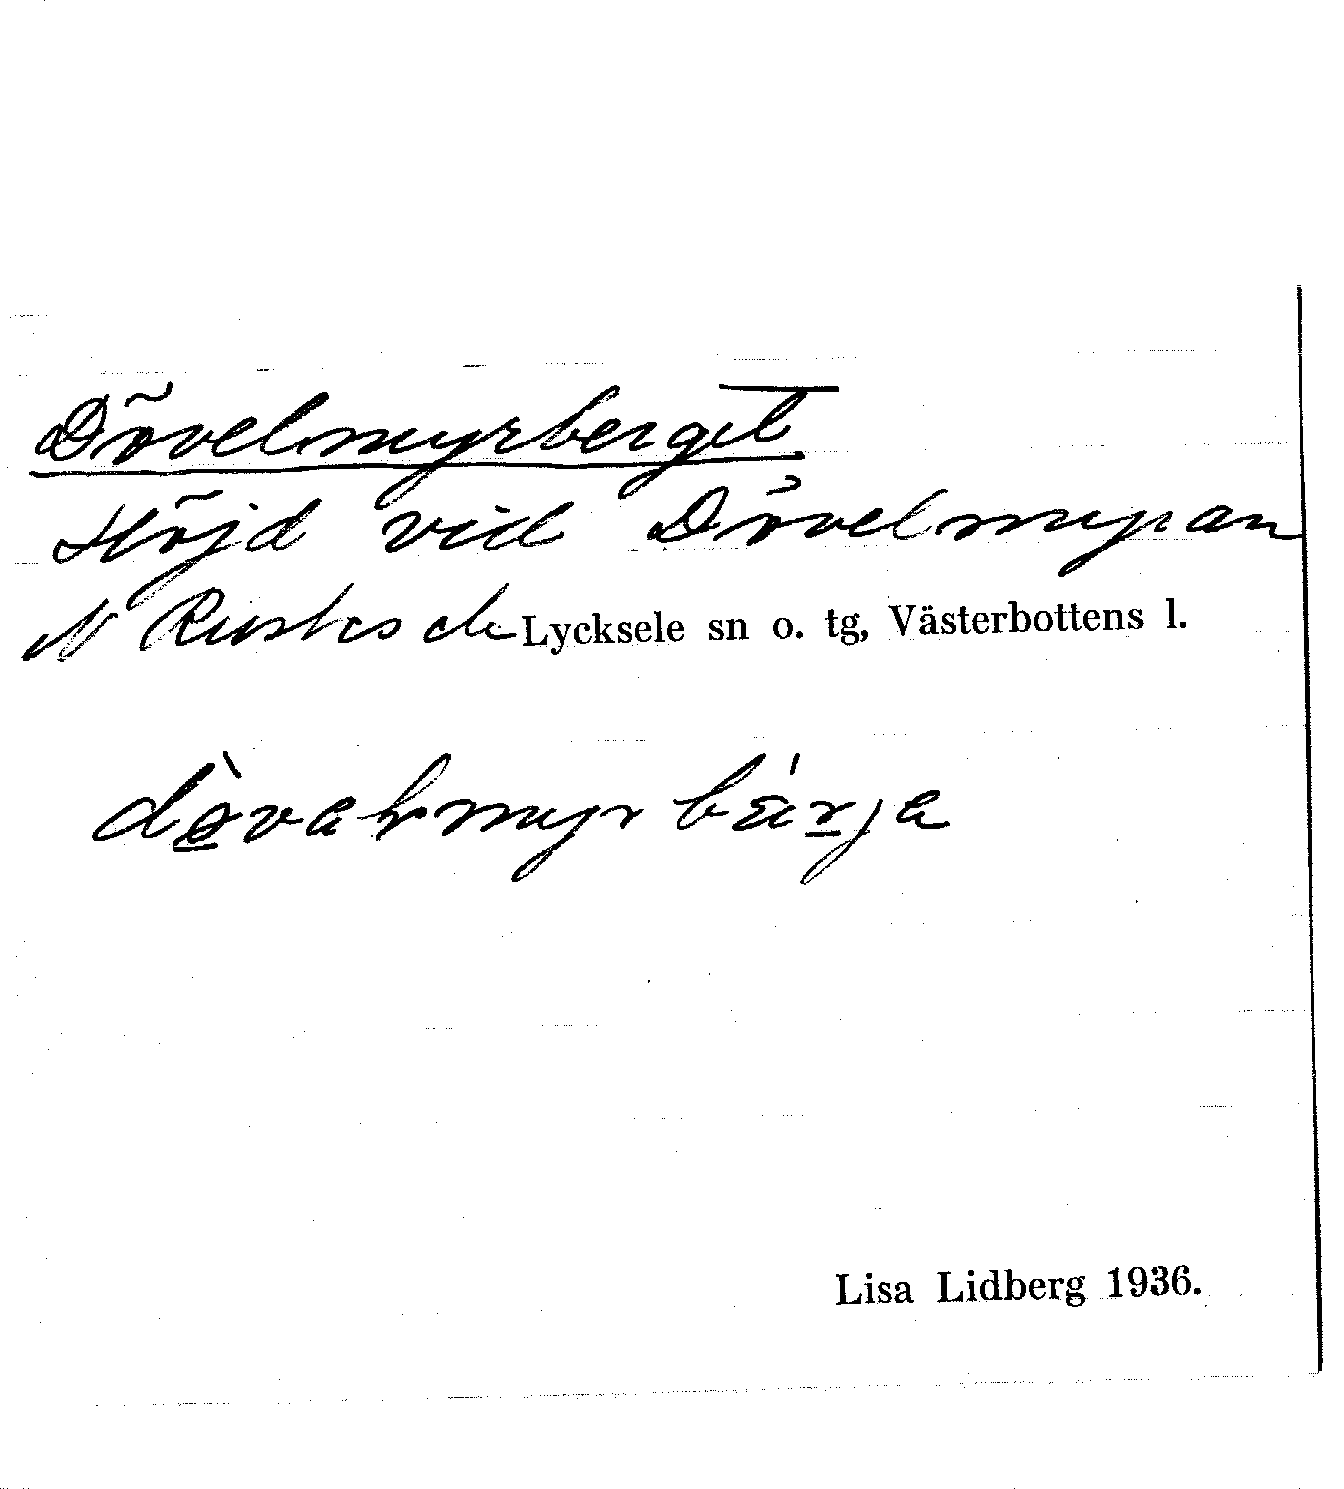 Dövelmyrberget
Höjd vid Dövelmyran
N Rusksele Lycksele sn o. tg, Västerbottens l.
Lisa Lidberg 1936.